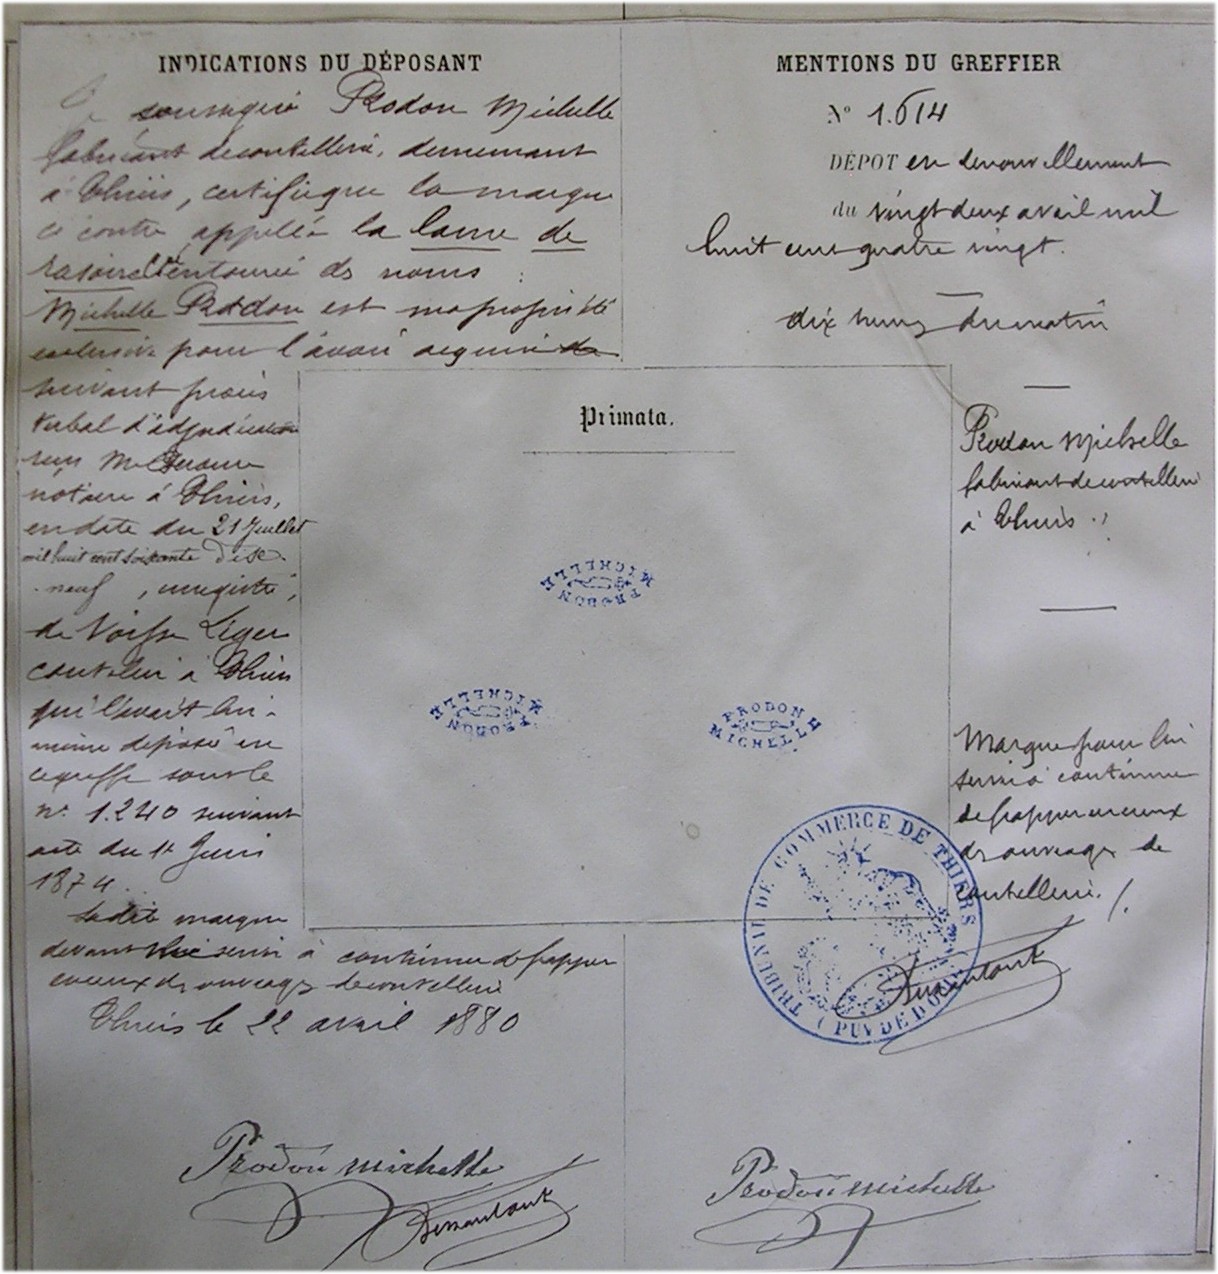 INDICATIONS DU DÉPOSANT
soussigné Prodon Michelle
fabricant de coutellerie, demeurant
à Thiers, certifie que la marque
ci contre appellée la lame de
rasoir entourée des noms :
Michelle Prodon est ma propriété
exclusive pour l'avoir acquise de
suivant procès
verbal d'adjudication
reçu Me
notaire à Thiers,
en date du 21 Juillet
mil huit cent soixante dix
neuf, enregistré,
de Léger
coutelier à Thiers
qui l'avait lui-
même déposé en
ce greffe sous le
n° 1.240 suivant
acte du 1er Juin
1874.
Ladite marque
devant servir à continuer de frapper
creux d'ouvrages de coutellerie
Thiers le 22 avril 1880
Prodon Michelle
MENTIONS DU GREFFIER
N° 1.614
DÉPOT en renouvellement
du vingt deux avril mil
huit cent quatre vingt.
dix heures du matin
Prodon Michelle
fabricant de coutellerie
à Thiers
Marque pour lui
servir à continuer
de frapper en creux
des ouvrages de
coutellerie. /.
Prodon Michelle
Primata.
PRODON
MICHELLE
PRODON
MICHELLE
PRODON
MICHELLE
TRIBUNAL DE COMMERCE DE THIERS
(PUY DE DOME)